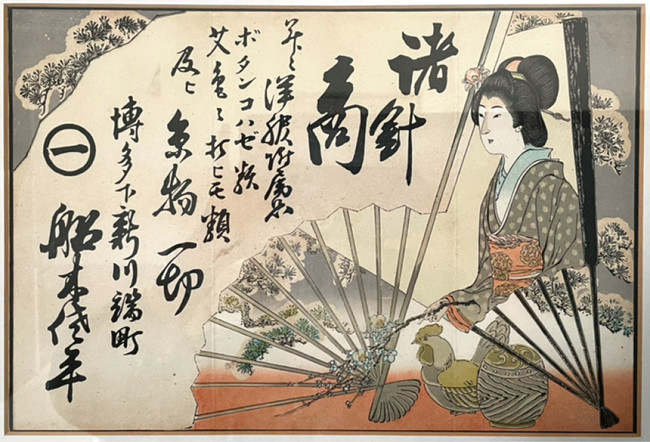 諸針
商
并ニ洋服附属品
ボタンコハゼ類
打ヒモ類
及ヒ糸物一切
博多下新川端町
一
船木